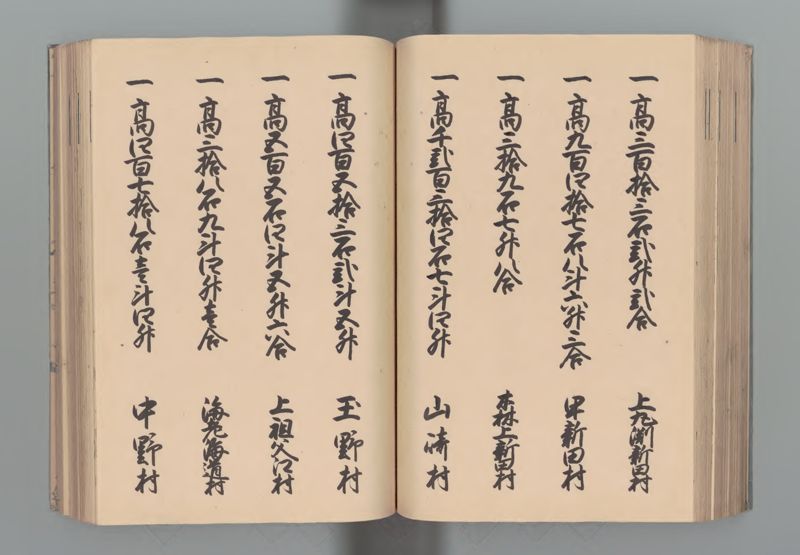 一高三百拾三石弐升弐合 上丸渕新田村
一高九百四拾七石八斗六升三合 甲新田村
一高三拾九石七升八合 本林上新田村
一高千弐百三拾四石七斗四升 山崎村
一高四百五拾三石弐斗五升 玉野村
一高五百五石四斗五升六合 上祖父江村
一高三拾八石九斗四升壱合 村
一高四百七拾八石壱斗四升 中野村